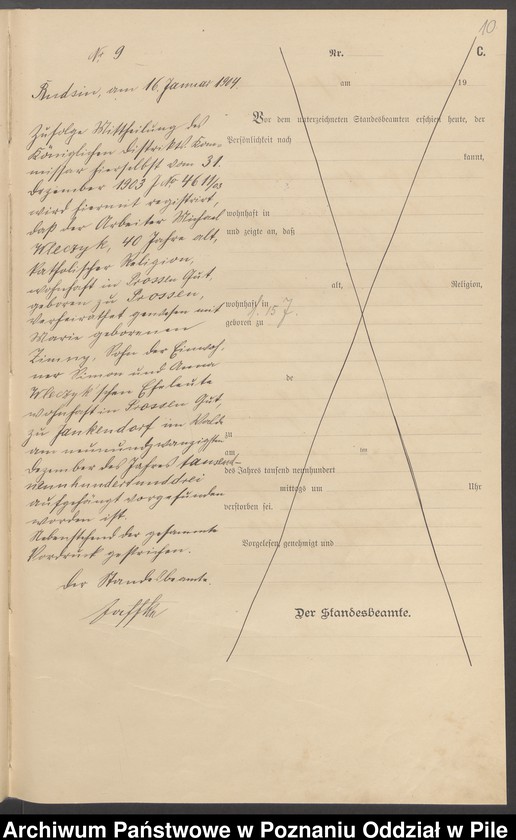 10
No 9
Nr.
C.
Rudsin, am 16. Januar 1904.
am 19
Vor dem unterzeichneten Standesbeamten erschien heute, der
Persönlichkeit nach
kannt,
Zufolge Mittheilung des
Königlichen Distrikts Kom-
missar hierselbst vom 31.
Dezember 1903 J No 4611/03
wird hiermit registrirt,
daß der Arbeiter Michael
Kleczyk, 40 Jahre alt,
katholischer Religion,
wohnhaft in Prossen Gut,
geboren zu Prossen,
verheirathet gewesen mit
Marie geborenen
Zimny, Sohn der Einwoh-
ner Simon und Anna
Kleczyk'schen Eheleute
wohnhaft in Prossen Gut,
zu Jankendorf im Walde
am neunundzwanzigsten
Dezember des Jahres tausend
neunhundertunddrei
aufgehängt vorgefunden
worden ist.
Nebenstehend der gesammte
Vordruck gestrichen.
Der Standesbeamte.
wohnhaft in
und zeigte an, daß
alt, Religion,
wohnhaft in
geboren zu
de
zu
am ten
des Jahres tausend neunhundert
mittags um Uhr
verstorben sei.
Vorgelesen, genehmigt und
Der Standesbeamte.
Archiwum Państwowe w Poznaniu Oddział w Pile